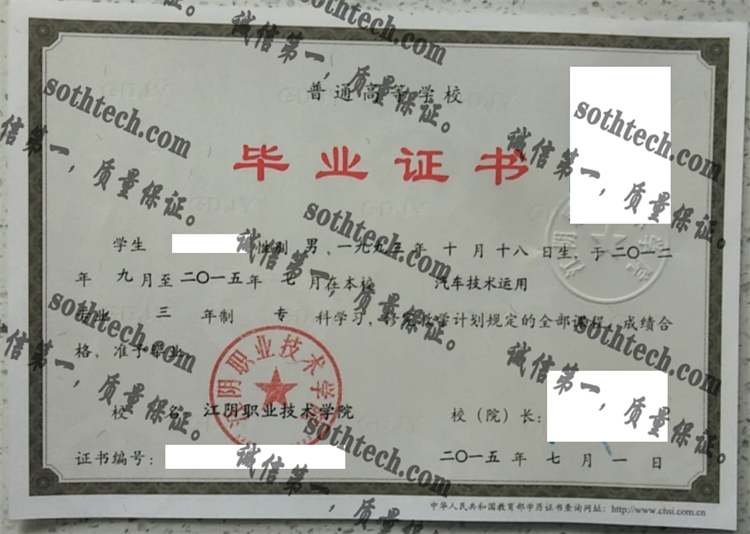 普通高等学校
毕业证书
学生 性别 男，一九九三年 十月十八日生，于二〇一二
年 九月至二〇一五年 七月在本校 汽车技术运用
专业 三 年制 专 科学习，修完教学计划规定的全部课程，成绩合
格，准予毕业。
校 名：江阴职业技术学院 校（院）长：
证书编号： 二〇一五 年 七 月 一 日
中华人民共和国教育部学历证书查询网址：http://www.chsi.com.cn
江阴职业技术学院
sothtech.com
诚信第一，质量保证。
sothtech.com
诚信第一，质量保证。
sothtech.com
诚信第一，质量保证。
sothtech.com
诚信第一，质量保证。
sothtech.com
诚信第一，质量保证。
sothtech.com
诚信第一，质量保证。
sothtech.com
诚信第一，质量保证。